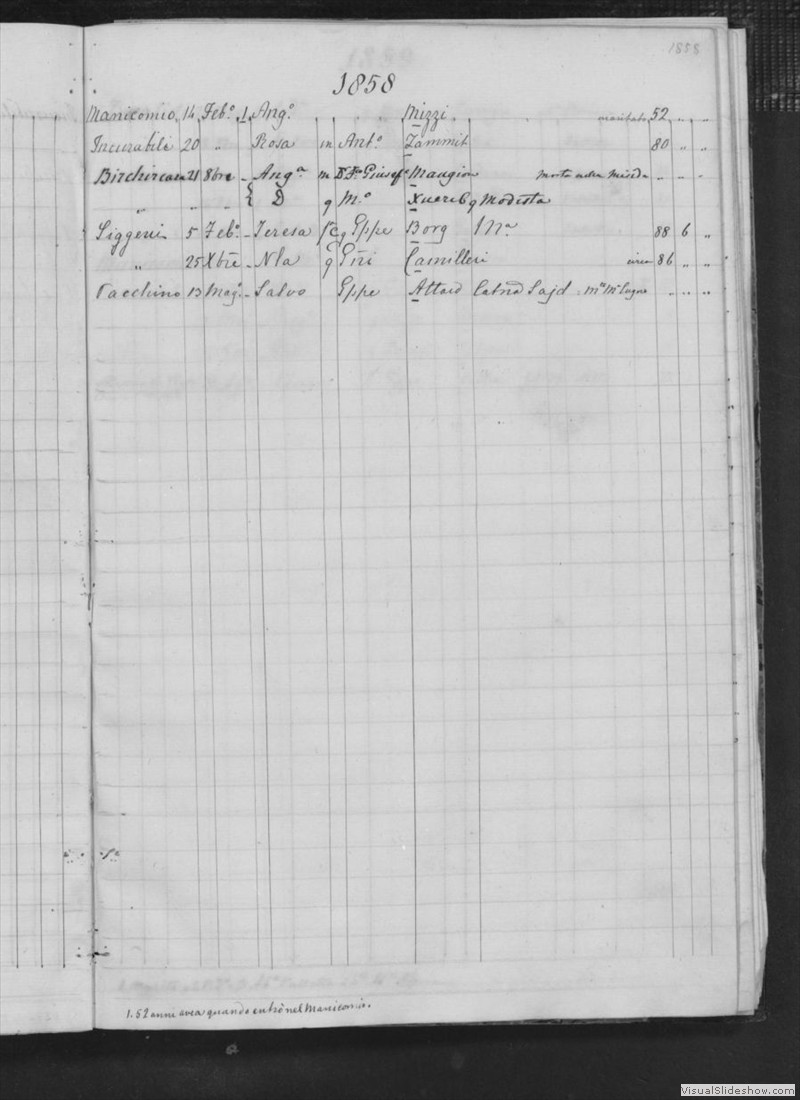 1858
1858
Manicomio 14 Feb.º 1. Ang.º „ „ „ „ Mizzi „ „ maritato 52 „ „
Incurabili 20 „ Rosa in Ant.º Zammit 80 „ „
Birchircara 21 8bre - Ang.ª in D. Giusep.e Mangion Morta nella „ „ „
„ „ „ { D q M.º Xuereb q Modesta
Siggeui 5 Feb.º - Teresa q Gppe Borg M.ª 88 6 „
„ 25 Xbre - Nla q Gñi Camilleri circa 86 „ „
13 Mag.º - Salvo Gppe Attard Sajd „ „ „
1. 52 anni avea quando entrò nel Manicomio.
VisualSlideshow.com